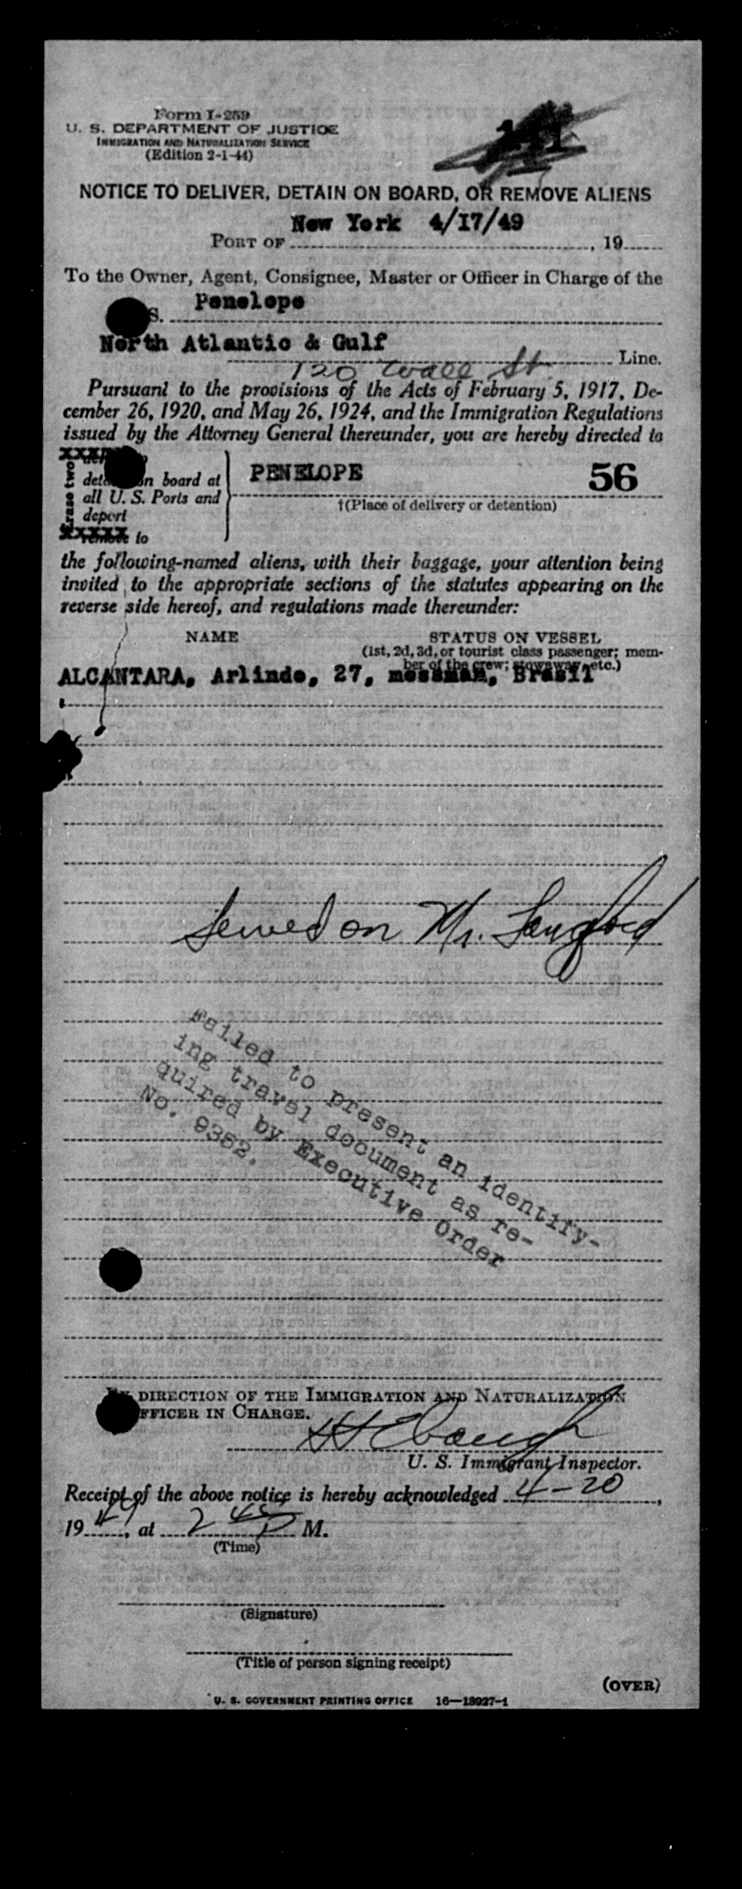 Form I-259
U. S. DEPARTMENT OF JUSTICE
IMMIGRATION AND NATURALIZATION SERVICE
(Edition 2-1-44)
NOTICE TO DELIVER, DETAIN ON BOARD, OR REMOVE ALIENS
New York 4/17/49
PORT OF , 19
To the Owner, Agent, Consignee, Master or Officer in Charge of the
S. Penelope
North Atlantic & Gulf
120 Wall St Line.
Pursuant to the provisions of the Acts of February 5, 1917, De-
cember 26, 1920, and May 26, 1924, and the Immigration Regulations
issued by the Attorney General thereunder, you are hereby directed to
on board at PENELOPE 56
all U. S. Ports and †(Place of delivery or detention)
deport
remove to
the following-named aliens, with their baggage, your attention being
invited to the appropriate sections of the statutes appearing on the
reverse side hereof, and regulations made thereunder:
NAME STATUS ON VESSEL
(1st, 2d, 3d, or tourist class passenger; mem-
ber of the crew; stowaway, etc.)
ALCANTARA, Arlindo, 27, messman, Brasil
Served on Mr. Langford
Failed to present an identify-
ing travel document as re-
quired by Executive Order
No. 9352.
BY DIRECTION OF THE IMMIGRATION AND NATURALIZATION
OFFICER IN CHARGE.
U. S. Immigrant Inspector.
Receipt of the above notice is hereby acknowledged 4-20,
1949, at 2 45 P M.
(Time)
(Signature)
(Title of person signing receipt)
(OVER)
U. S. GOVERNMENT PRINTING OFFICE 16—18927-1